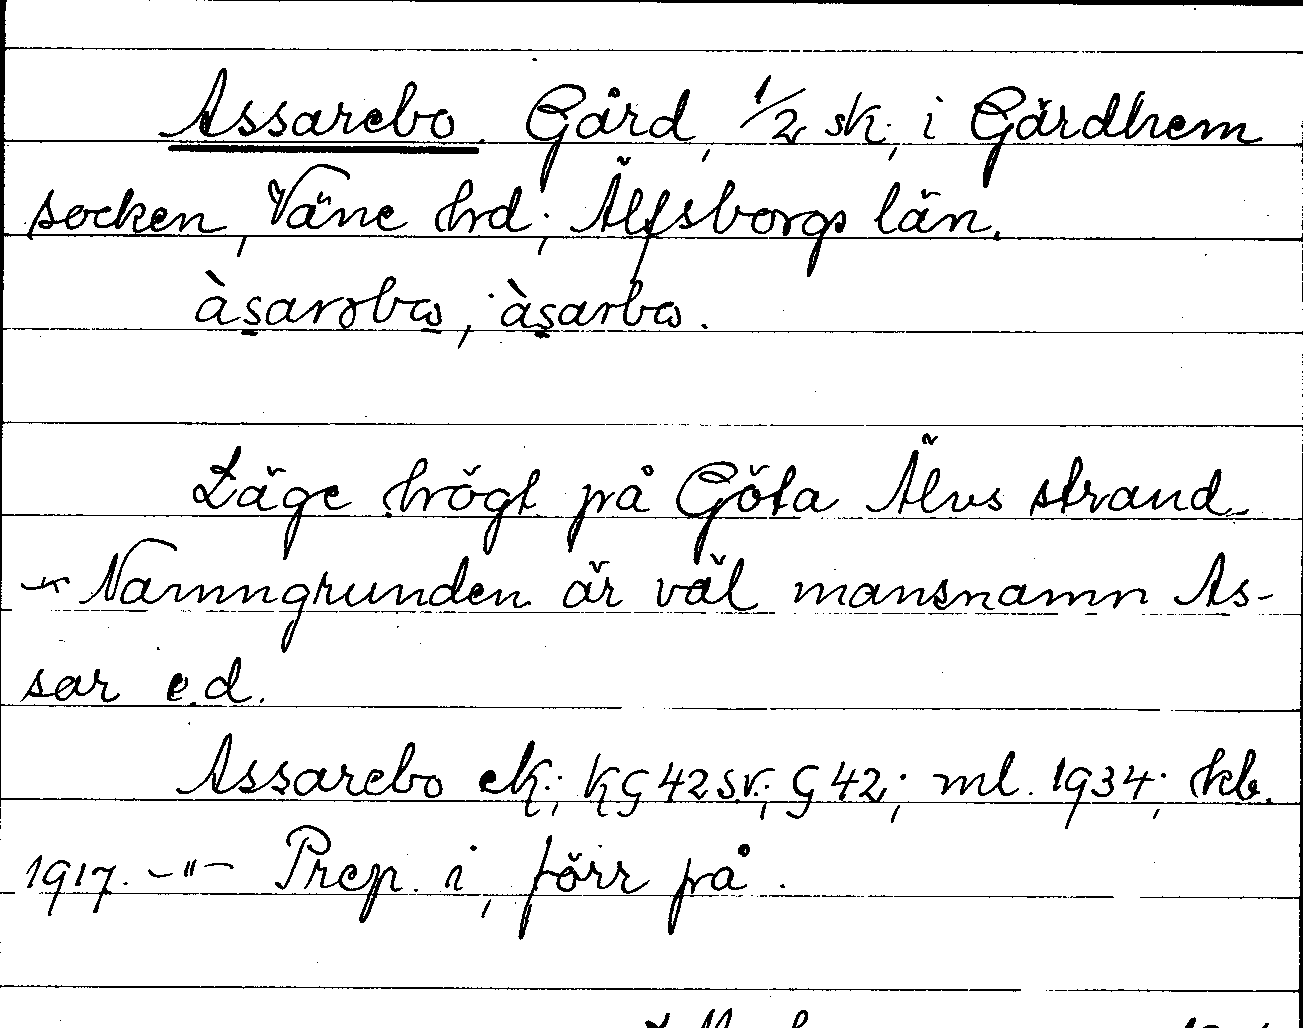 Assarebo Gård, 1/2 sk., i Gärdhem
socken, Väne hrd, Älfsborgs län.
àsarəba, àsarba.
Läge högt på Göta Älvs strand.
Namngrunden är väl mansnamn As-
sar e.d.
Assarebo ek.; KG 42 SV; G 42; ml. 1934; kb.
1917. -"- Prep. i, förr på.